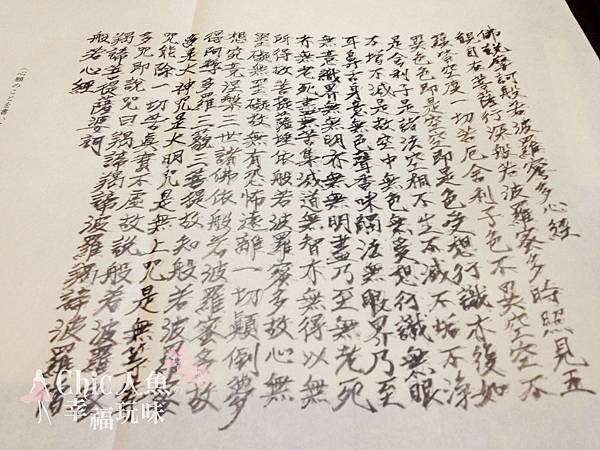 佛説摩訶般若波羅蜜多心經
觀自在菩薩行深般若波羅蜜多時照見五
蘊皆空度一切苦厄舍利子色不異空空不
異色色即是空空即是色受想行識亦復如
是舍利子是諸法空相不生不滅不垢不淨
不増不減是故空中無色無受想行識無眼
耳鼻舌身意無色聲香味觸法無眼界乃至
無意識界無無明亦無無明盡乃至無老死
亦無老死盡無苦集滅道無智亦無得以無
所得故菩提薩埵依般若波羅蜜多故心無
罣礙無罣礙故無有恐怖遠離一切顛倒夢
想究竟涅槃三世諸佛依般若波羅蜜多故
得阿耨多羅三藐三菩提故知般若波羅蜜
多是大神咒是大明咒是無上咒是無等
咒能除一切苦真實不虚故説般若波羅
多咒即説咒曰羯諦羯諦波羅羯諦波羅
羯諦菩提薩婆訶
般若心經
(心願のことを書
Chic人魚
幸福玩味